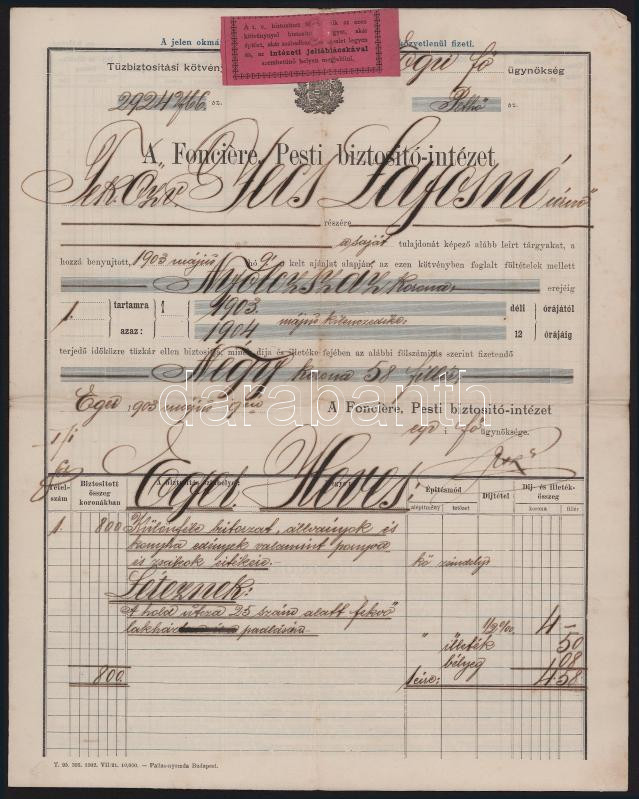 A jelen okmá
közvetlenül fizeti.
A t. c. biztosított ik az ezen
kötvénynyel
épület, akár
ez, az intézeti jeltáblácskával
szembetünő helyen megjelölni.
Tüzbiztositási kötvény
Egri fő ügynökség
292466 sz.
sz.
A „Foncière, Pesti biztositó-intézet
Tek. Özv. Lajosné
részére
a saját tulajdonát képező alább leirt tárgyakat, a
hozzá benyujtott, 1903 május hó 9 kelt ajánlat alapján, az ezen kötvényben foglalt föltételek mellett
Nyolczszáz korona erejéig
1. tartamra 1 1903. déli órájától
azaz: 1904 május kilenczedike 12 órájáig
terjedő időközre tüzkár ellen biztositja, minek dija és illetéke fejében az alábbi fölszámitás szerint fizetendő
Négy korona 58 fillér
Eger 1903 május 9én
A Foncière, Pesti biztositó-intézet
egri fő ügynöksége.
Eger, Heves
Tétel-szám
Biztositott összeg koronákban
A biztositás székhelye:
Épitésmód
Dijtétel
Dij- és illeték-összeg
alépitmény
tetőzet
korona
fillér
1 800 Különféle kitoszat, állványok és
konyha edények valamint ponyva
és zsákok értéke.- kő zsindely
Léteznek:
A hold útcza 25 szám alatt fekvő
lakház padlásán 1/2 % 4 -
" illeték 50
bélyeg 08
800. 1 évre: 4.58
T. 25. 392. 1902. VII/21. 10,000. — Pallas-nyomda Budapest.
darabanth